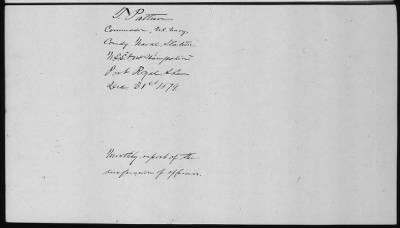 T. Pattison
Commodore, U.S. Navy.
Comdg. Naval Station
U.S.S. New Hampshire
Port Royal
Dec. 31st 187
Monthly report of the
of officers.